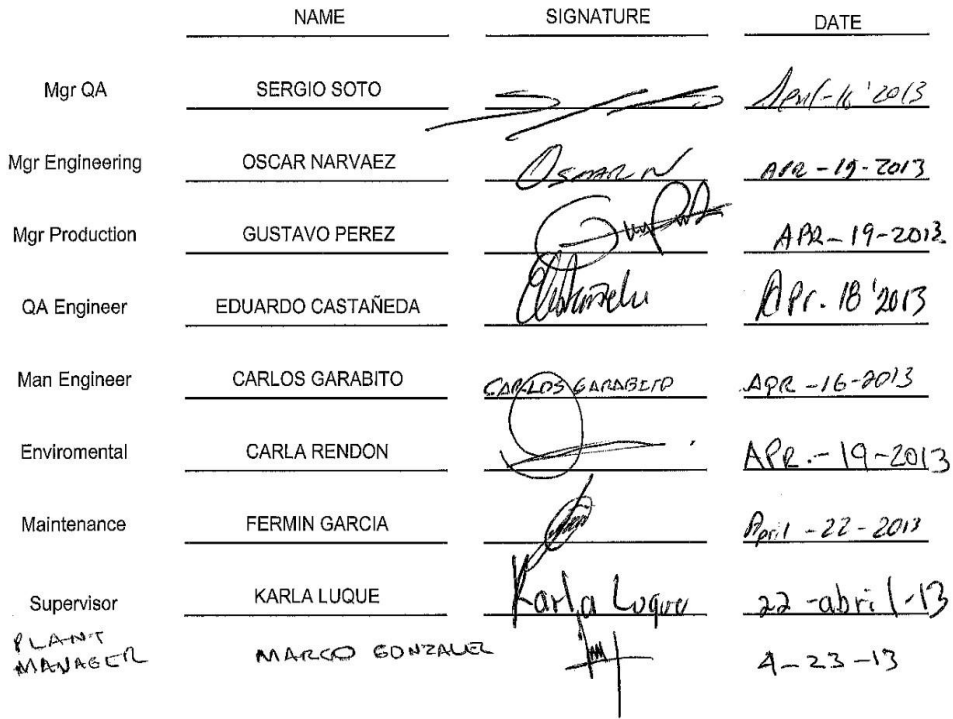 NAME SIGNATURE DATE
Mgr QA SERGIO SOTO April-16 '2013
Mgr Engineering OSCAR NARVAEZ OSCAR N APR-19-2013
Mgr Production GUSTAVO PEREZ APR-19-2013.
QA Engineer EDUARDO CASTAÑEDA ECastañeda Apr. 18 '2013
Man Engineer CARLOS GARABITO CARLOS GARABITO APR-16-2013
Enviromental CARLA RENDON APR.-19-2013
Maintenance FERMIN GARCIA April-22-2013
Supervisor KARLA LUQUE Karla Luque 22-abril-13
PLANT
MANAGER MARCO GONZALEZ 4-23-13